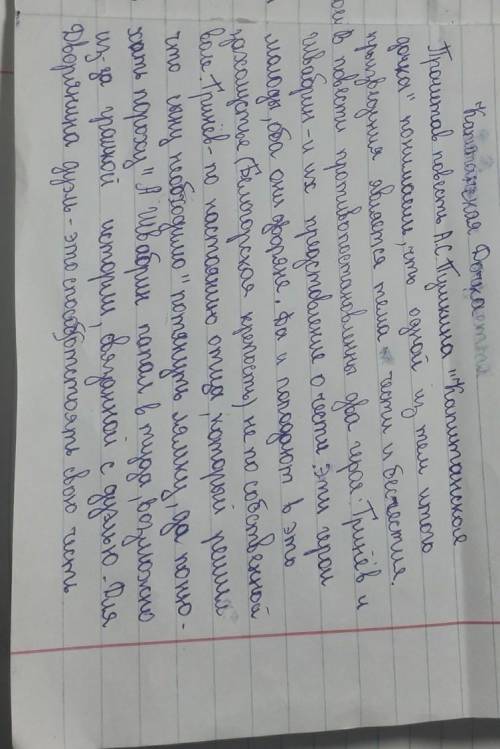 Капитанская Дочка
Прочитав повесть А.С. Пушкина "Капитанская
дочка" понимаем, что одной из тем итого
прызведения является тема чести и бесчестия.
в повести противопоставленны два героя: Гринёв и
Швабрин - и их представление о чести. Эти герои
молоды, оба они дворяне. Да и попадают в это
захолустье (Белгорская крепость) не по собственной
воле. Гринёв - по настоянию отца, который решил
что сыну необходимо "потянуть лямку, да поню-
хать пороху" А Швабрин попал в туда, возможно
из-за громкой истории, связанной с дуэлью. Для
Дворянина дуэль - это способ отстоять свою честь